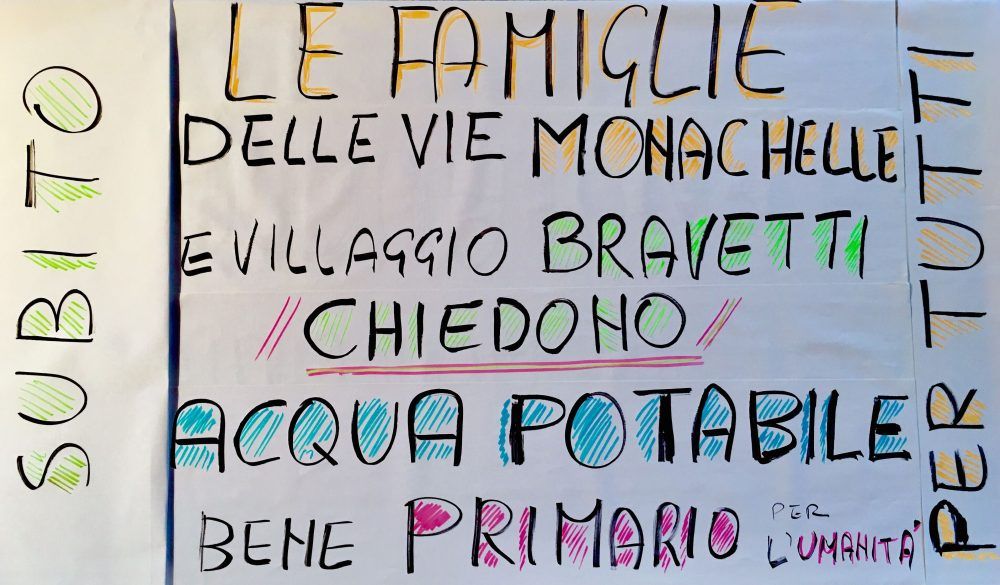 SUBITO
LE FAMIGLIE
DELLE VIE MONACHELLE
E VILLAGGIO BRAVETTI
// CHIEDONO //
ACQUA POTABILE
BENE PRIMARIO PER L'UMANITÁ
PER TUTTI